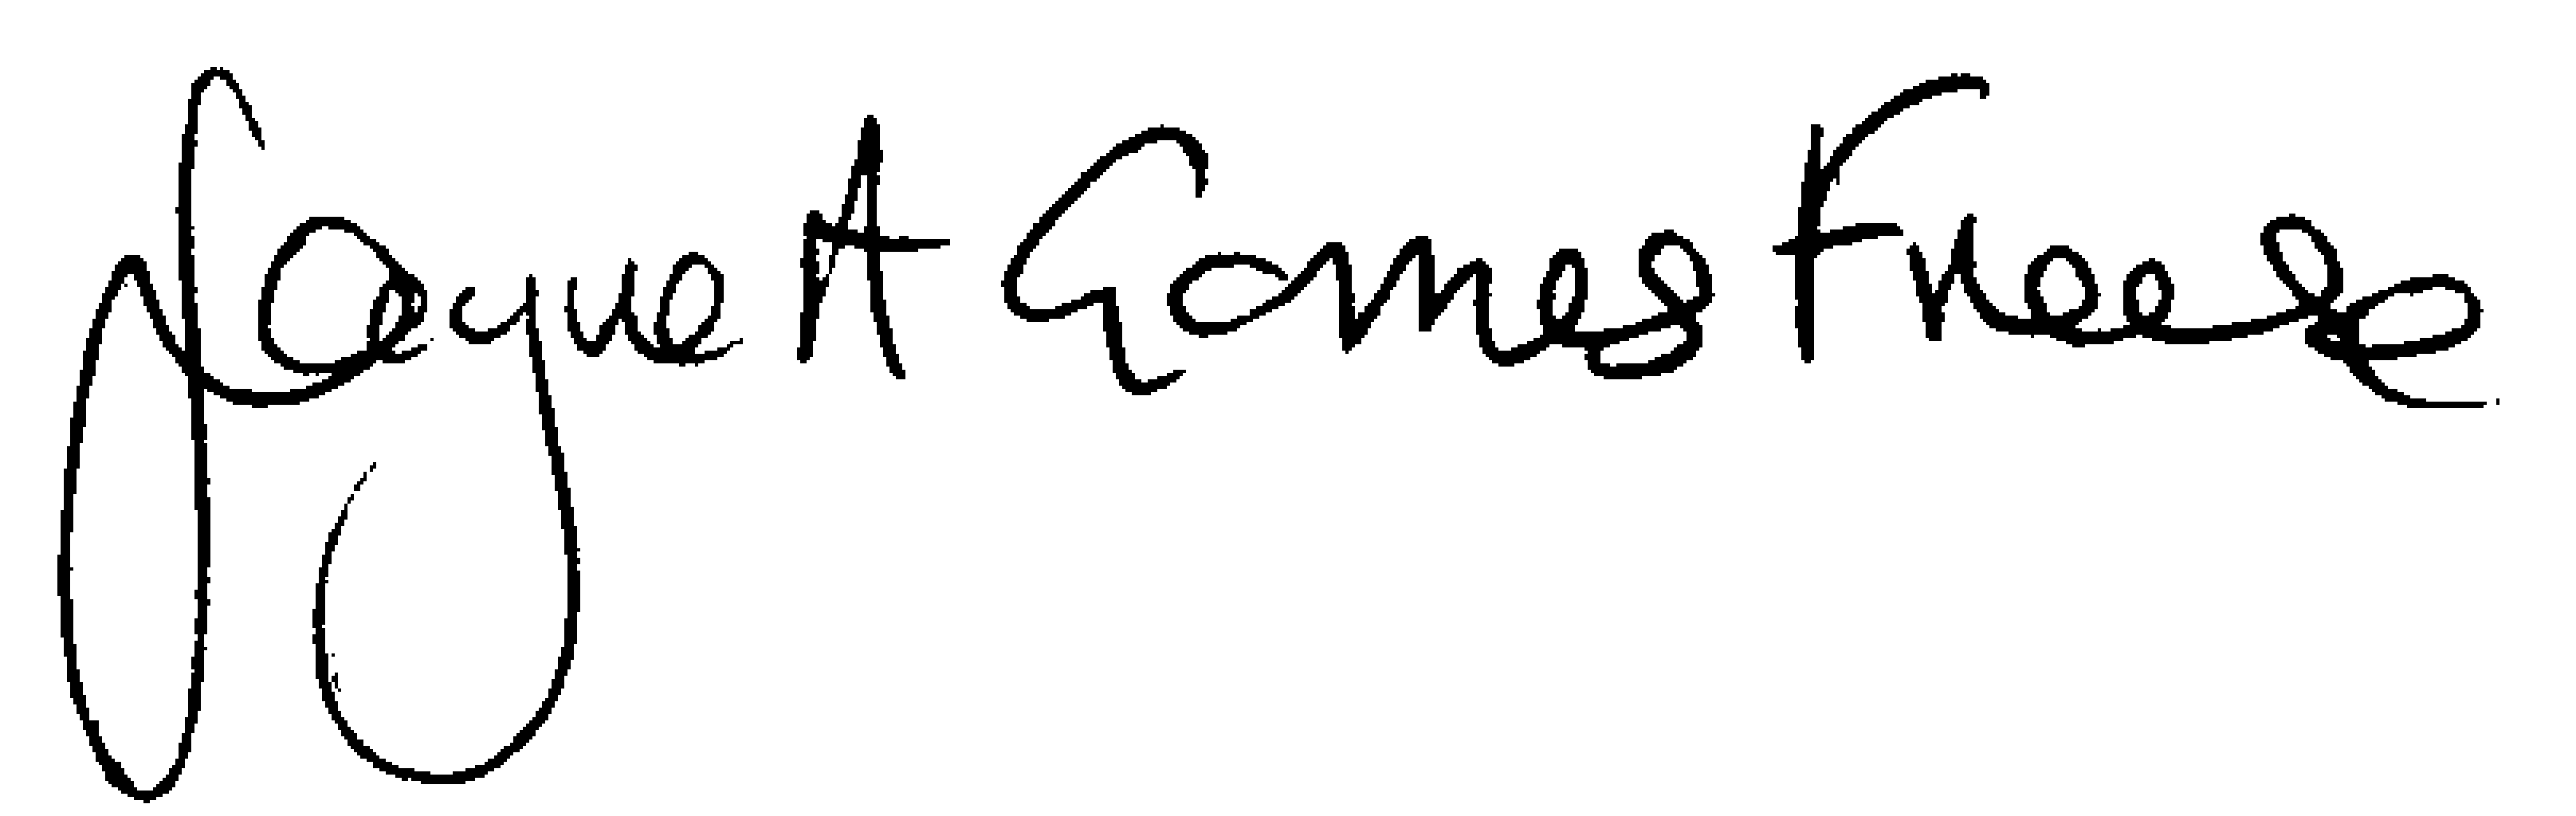 Jayne A Gomes Freese